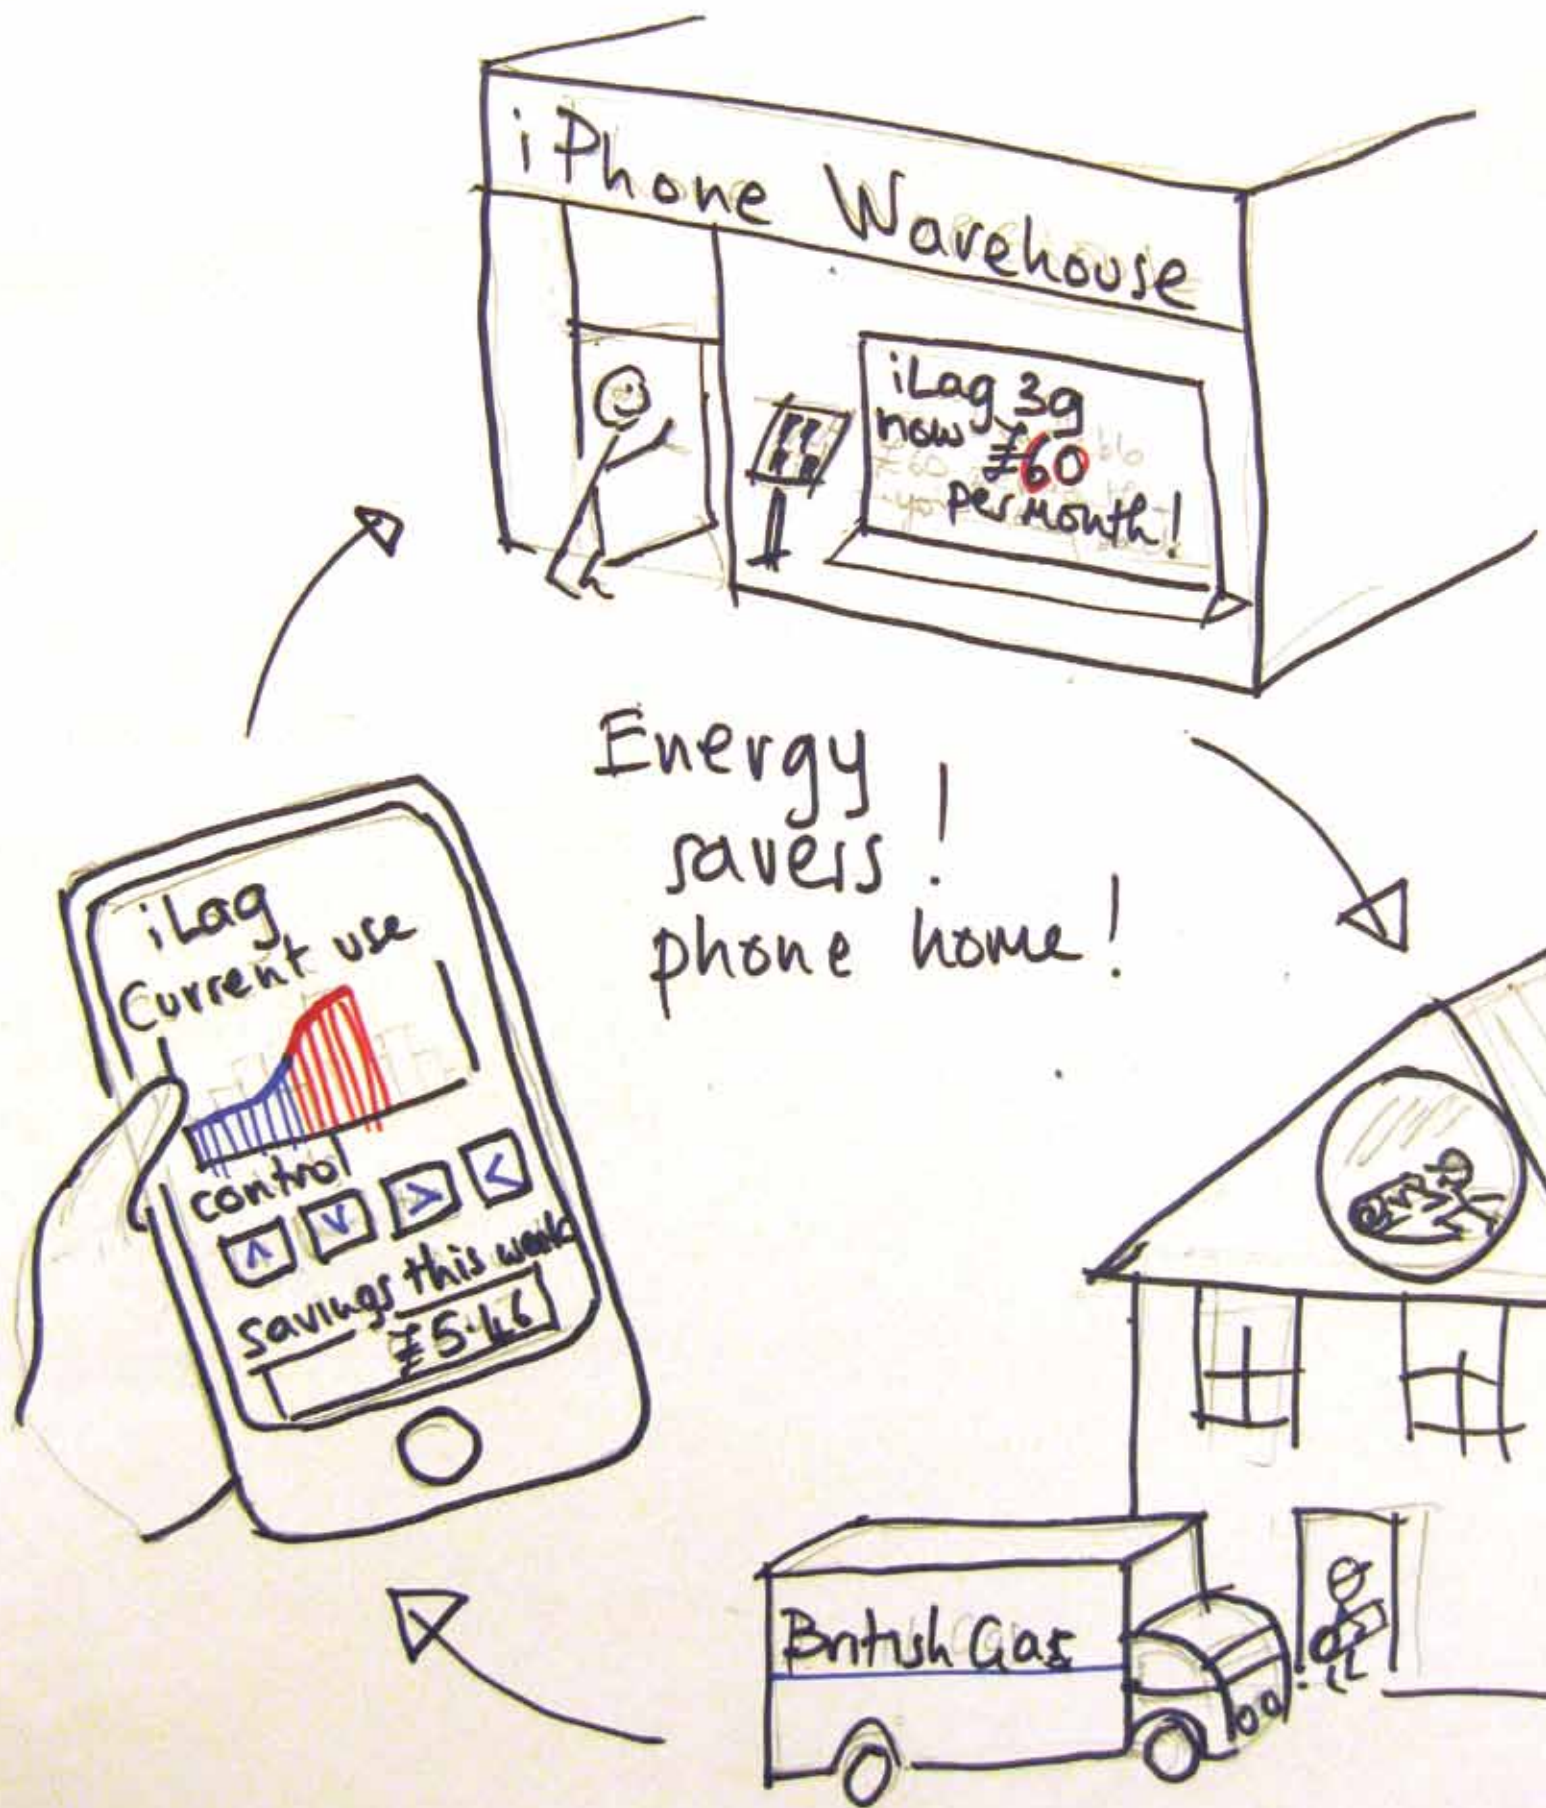 iPhone Warehouse
iLag 3g
now £60
per month!
Energy
savers!
phone home!
iLag
Current use
control
^ v > <
savings this week
£5.46
British Gas